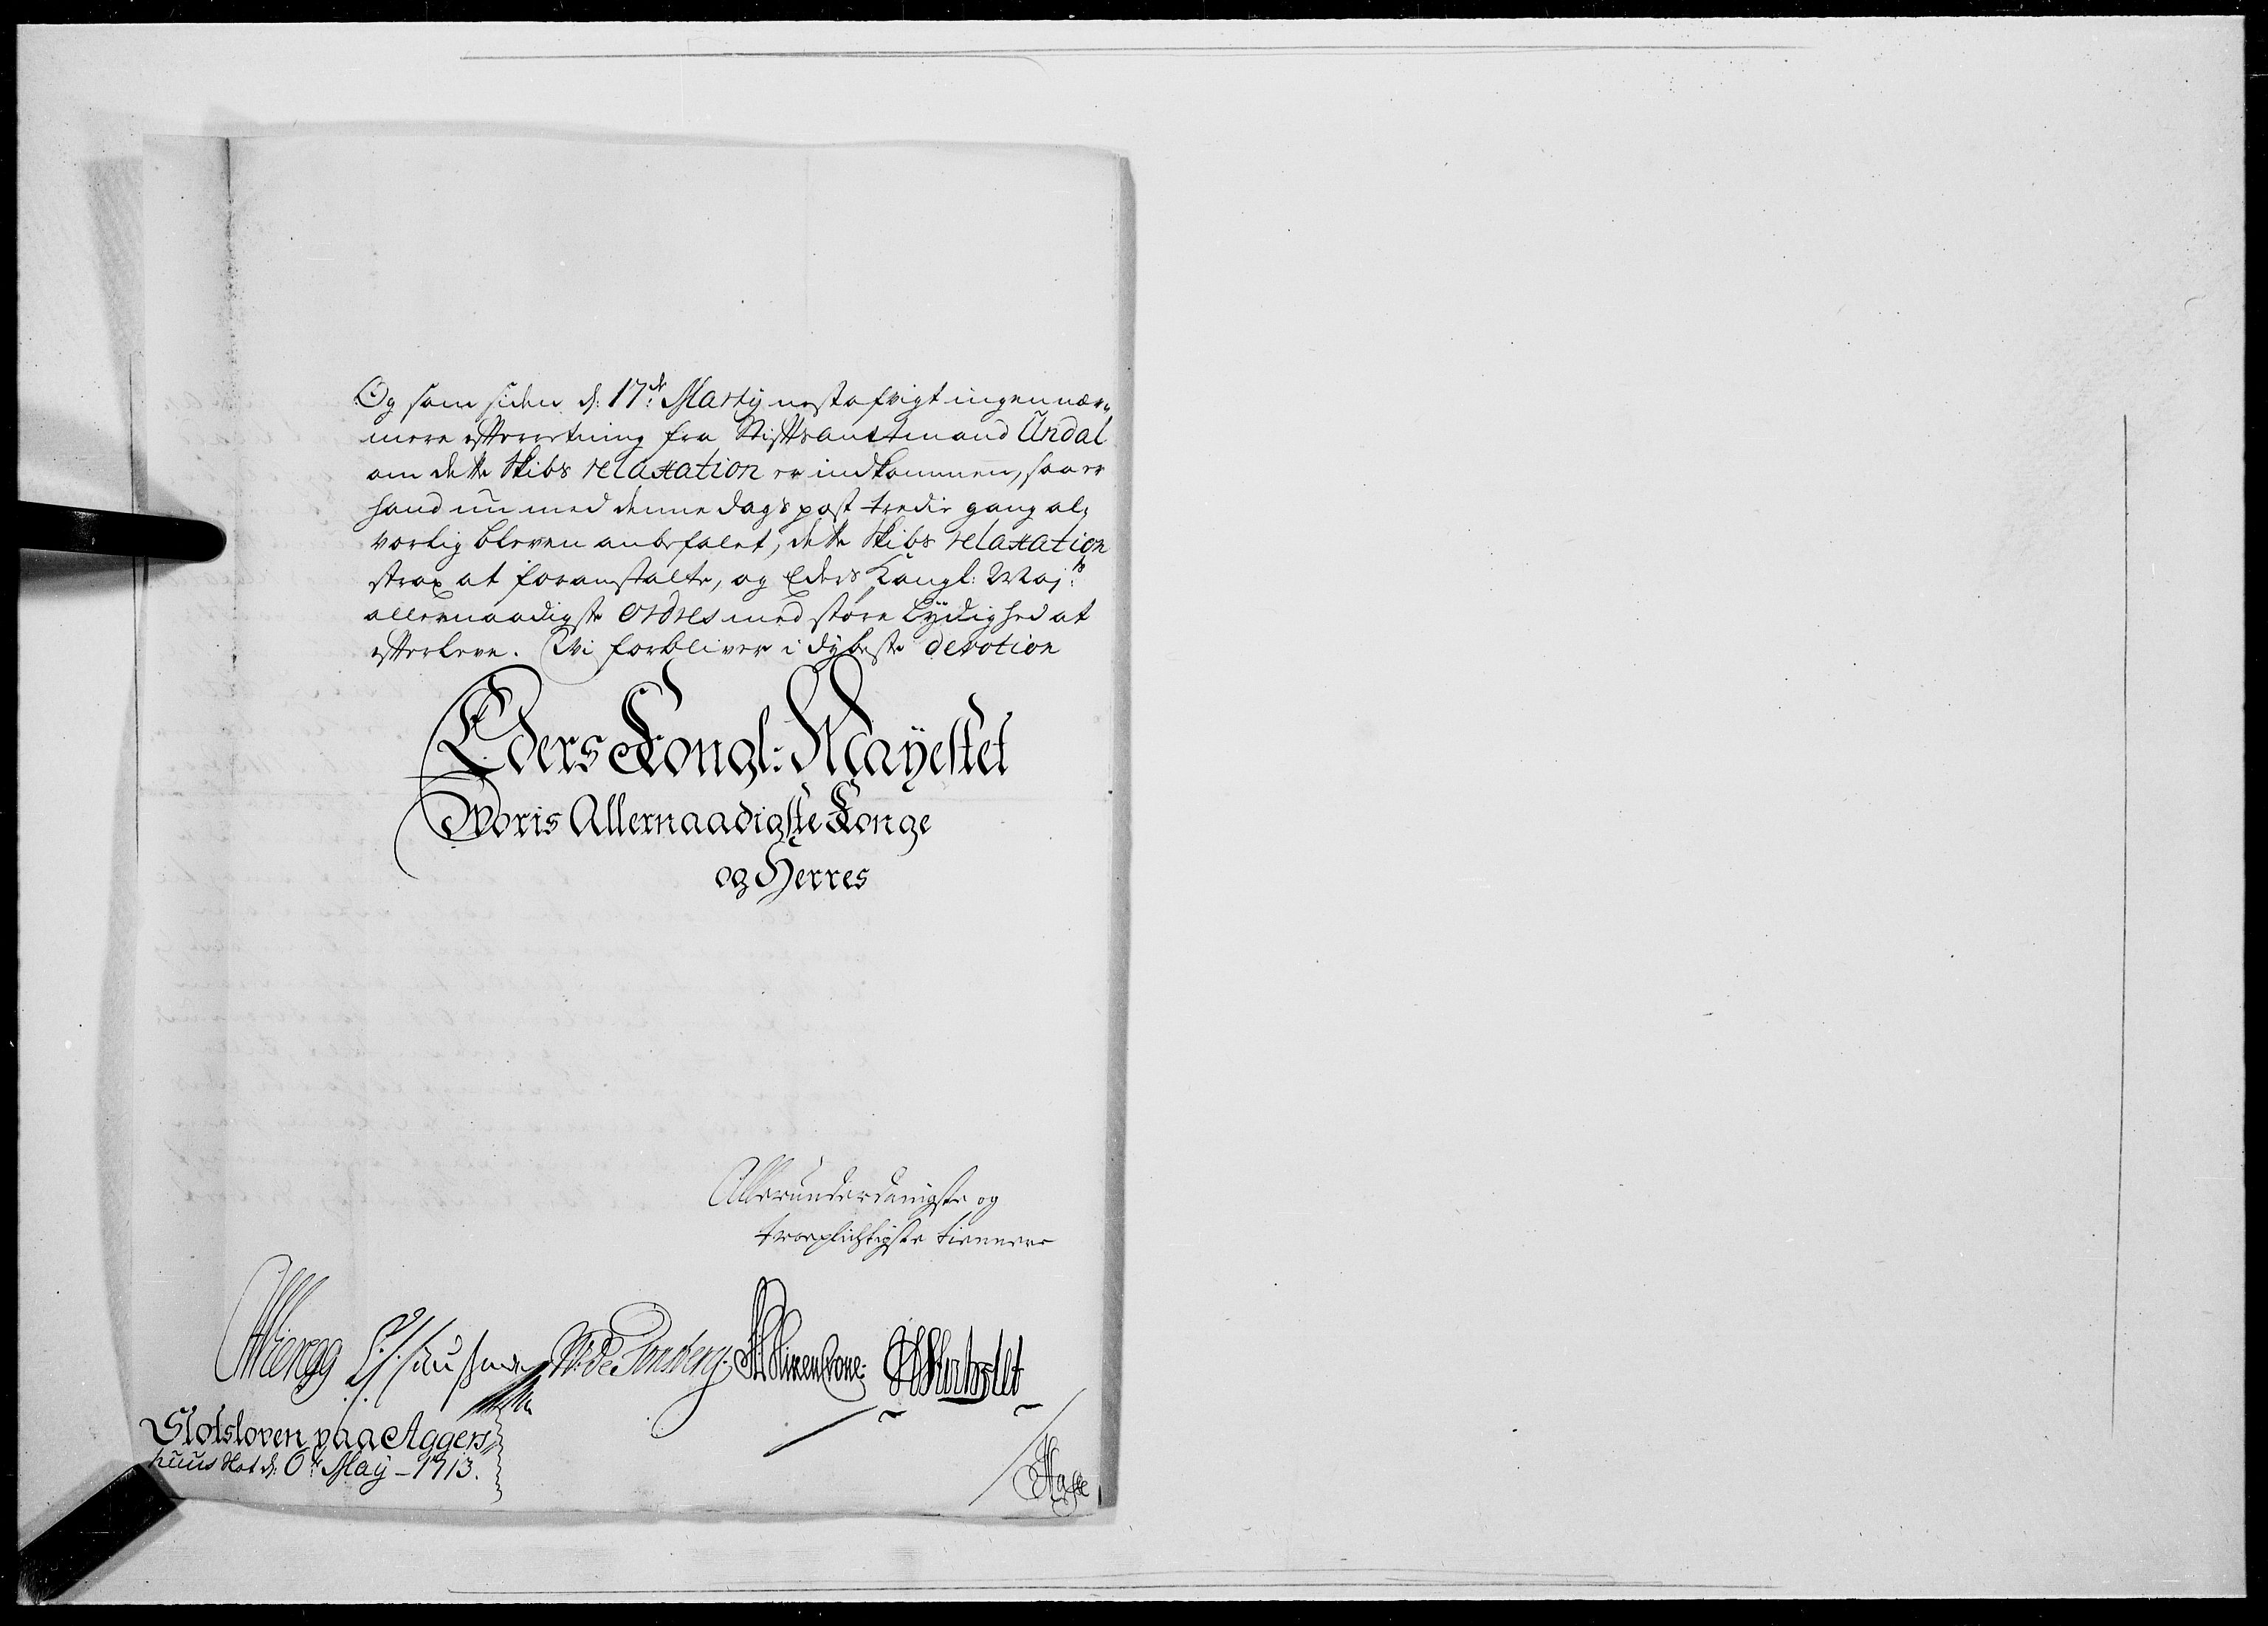 Og som siden d: 17de Martij nest afvigt ingen nær¬
mere efterretning fra Stiftsamtmand Ùndal
om dette Skibs relaxation er indkommen, saa er
hand nu med denne dags post tredie gang al¬
vorlig bleven anbefalet, dette Skibs relaxation
strax at foranstalte, og Eders Kongl: Maj:ts
allernaadigste ordres med støre lydighed at
efterleve. Wi forbliver i dybeste devotion
Eders Kongl: Mayestet
Woris Allernaadigste Konge
og Herres
Allerunderdanigste og
troepligtigste tiennere
FWieregg C. f. Hausman W: de Tonsberg
Slotsloven paa Aggers¬
huus Slot d: 6te Maÿ - 1713.